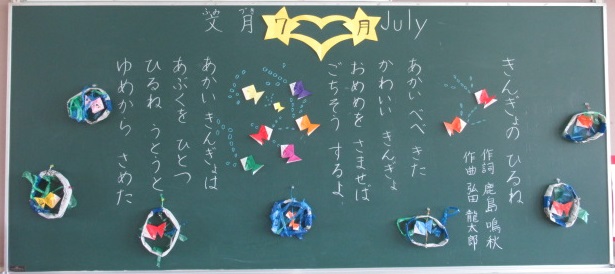 文月
ふみ
づき
7月
July
きんぎょの ひるね
作詞 鹿島 鳴秋
作曲 弘田 龍太郎
あかい べべ きた
かわいい きんぎょ
おめめを さませば
ごちそう するよ
あかい きんぎょは
あぶくを ひとつ
ひるね うとうと
ゆめから さめた